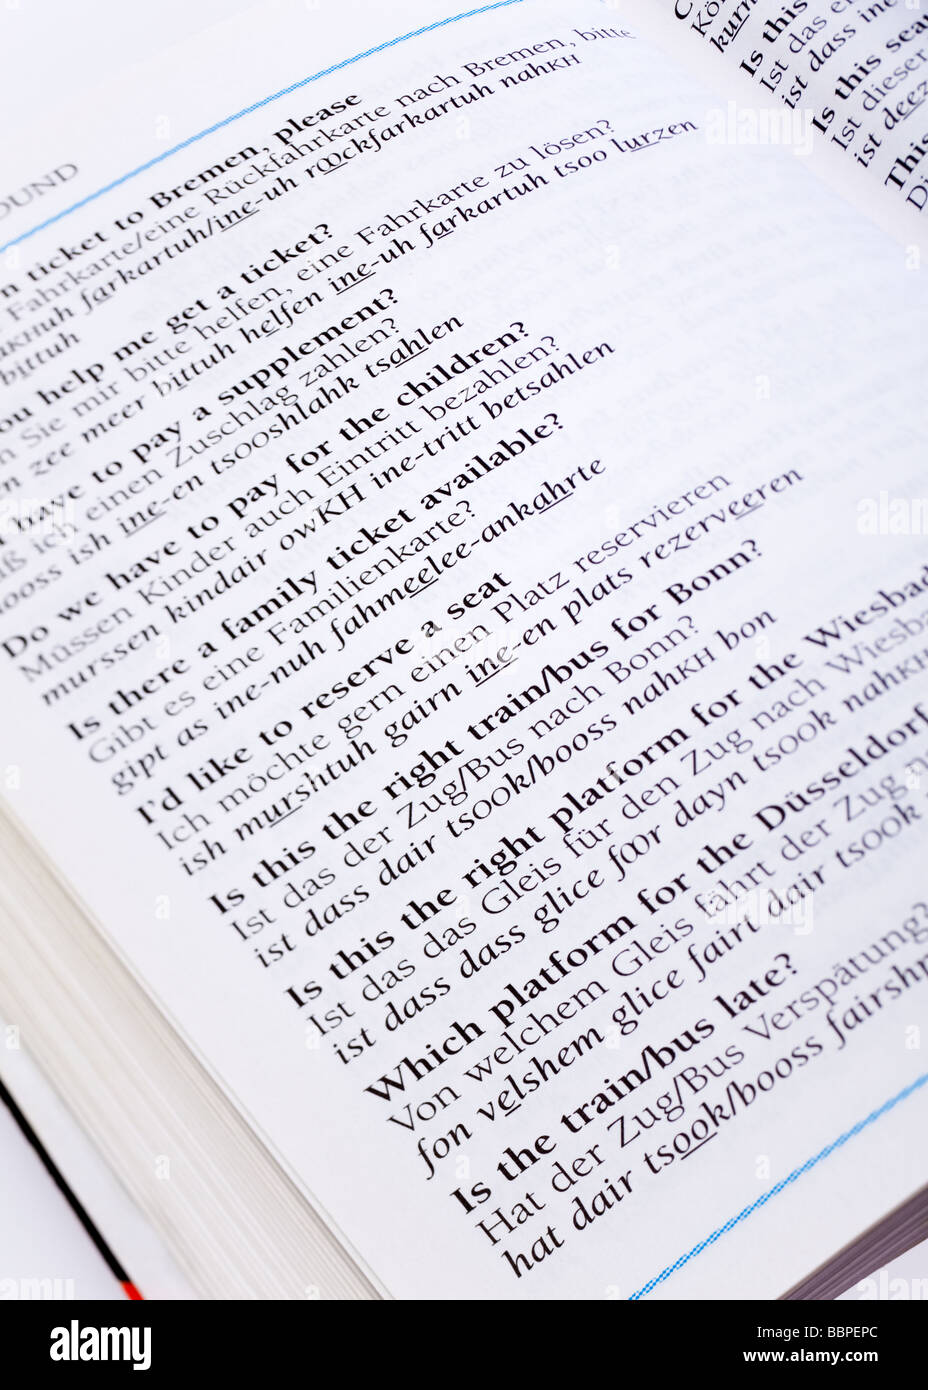 OUND
n ticket to Bremen, please
Fahrkarte/eine Rückfahrkarte nach Bremen, bitte
farkartuh/ine-uh rookfarkartuh nahKH
bittuh
ou help me get a ticket?
n Sie mir bitte helfen, eine Fahrkarte zu lösen?
n zee meer bittuh helfen ine-uh farkartuh tsoo lurzen
have to pay a supplement?
ß ich einen Zuschlag zahlen?
ooss ish ine-en tsooshlahk tsahlen
Do we have to pay for the children?
Müssen Kinder auch Eintritt bezahlen?
murssen kindair owKH ine-tritt betsahlen
Is there a family ticket available?
Gibt es eine Familienkarte?
gipt as ine-nuh fahmeelee-ankahrte
I'd like to reserve a seat
Ich möchte gern einen Platz reservieren
ish murshtuh gairn ine-en plats rezerveeren
Is this the right train/bus for Bonn?
Ist das der Zug/Bus nach Bonn?
ist dass dair tsook/booss nahKH bon
Is this the right platform for the Wiesbad
Ist das das Gleis für den Zug nach Wiesba
ist dass dass glice foor dayn tsook nahKH
Which platform for the Düsseldorf
Von welchem Gleis fährt der Zug n
fon velshem glice fairt dair tsook
Is the train/bus late?
Hat der Zug/Bus Verspätung?
hat dair tsook/booss fairshp
kurn
Is this
Ist das e
ist dass ine
Is this sea
Ist dieser
ist deez
This
D
alamy
Image ID: BBPEPC
www.alamy.com